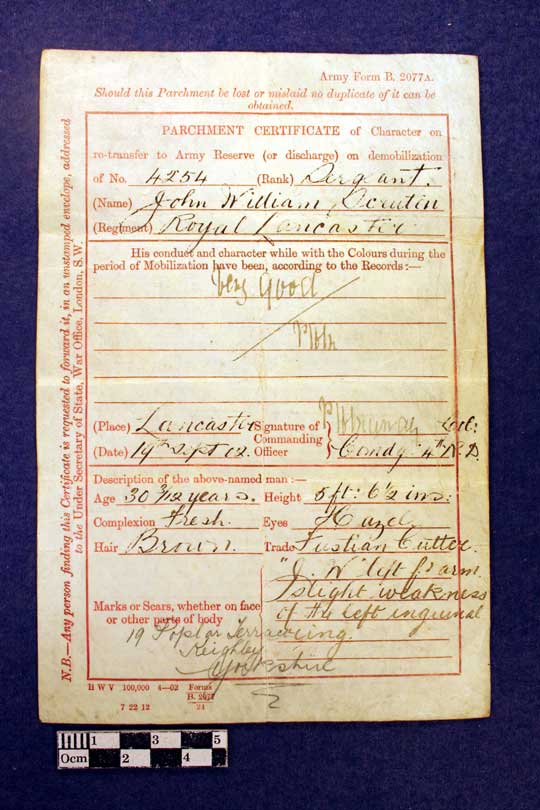 Army Form B. 2077A.
Should this Parchment be lost or mislaid no duplicate of it can be
obtained.
PARCHMENT CERTIFICATE of Character on
re-transfer to Army Reserve (or discharge) on demobilization
of No. 4254 (Rank) Sergeant.
(Name) John William Scruton
(Regiment) Royal Lancaster
His conduct and character while with the Colours during the
period of Mobilization have been, according to the Records:—
Very Good
(Place) Lancaster Signature of
Commanding
(Date) 19th Sept 02. Officer Comdg 4th R.D.
Description of the above-named man:—
Age 30 9/12 years. Height 5 ft: 6½ ins:
Complexion Fresh. Eyes Hazel
Hair Brown. Trade Fustian Cutter.
"J. W" left f. arm
Slight weakness
Marks or Scars, whether on face
or other parts of body
of the left inguinal
ring.
19 Poplar Terrace
Keighley
Yorkshire
H W V 100,000 4—02 Forms
B. 2077
24
7 22 12
N.B.—Any person finding this Certificate is requested to forward it, in an unstamped envelope, addressed
to the Under Secretary of State, War Office, London, S.W.
1 3 5
0cm 2 4